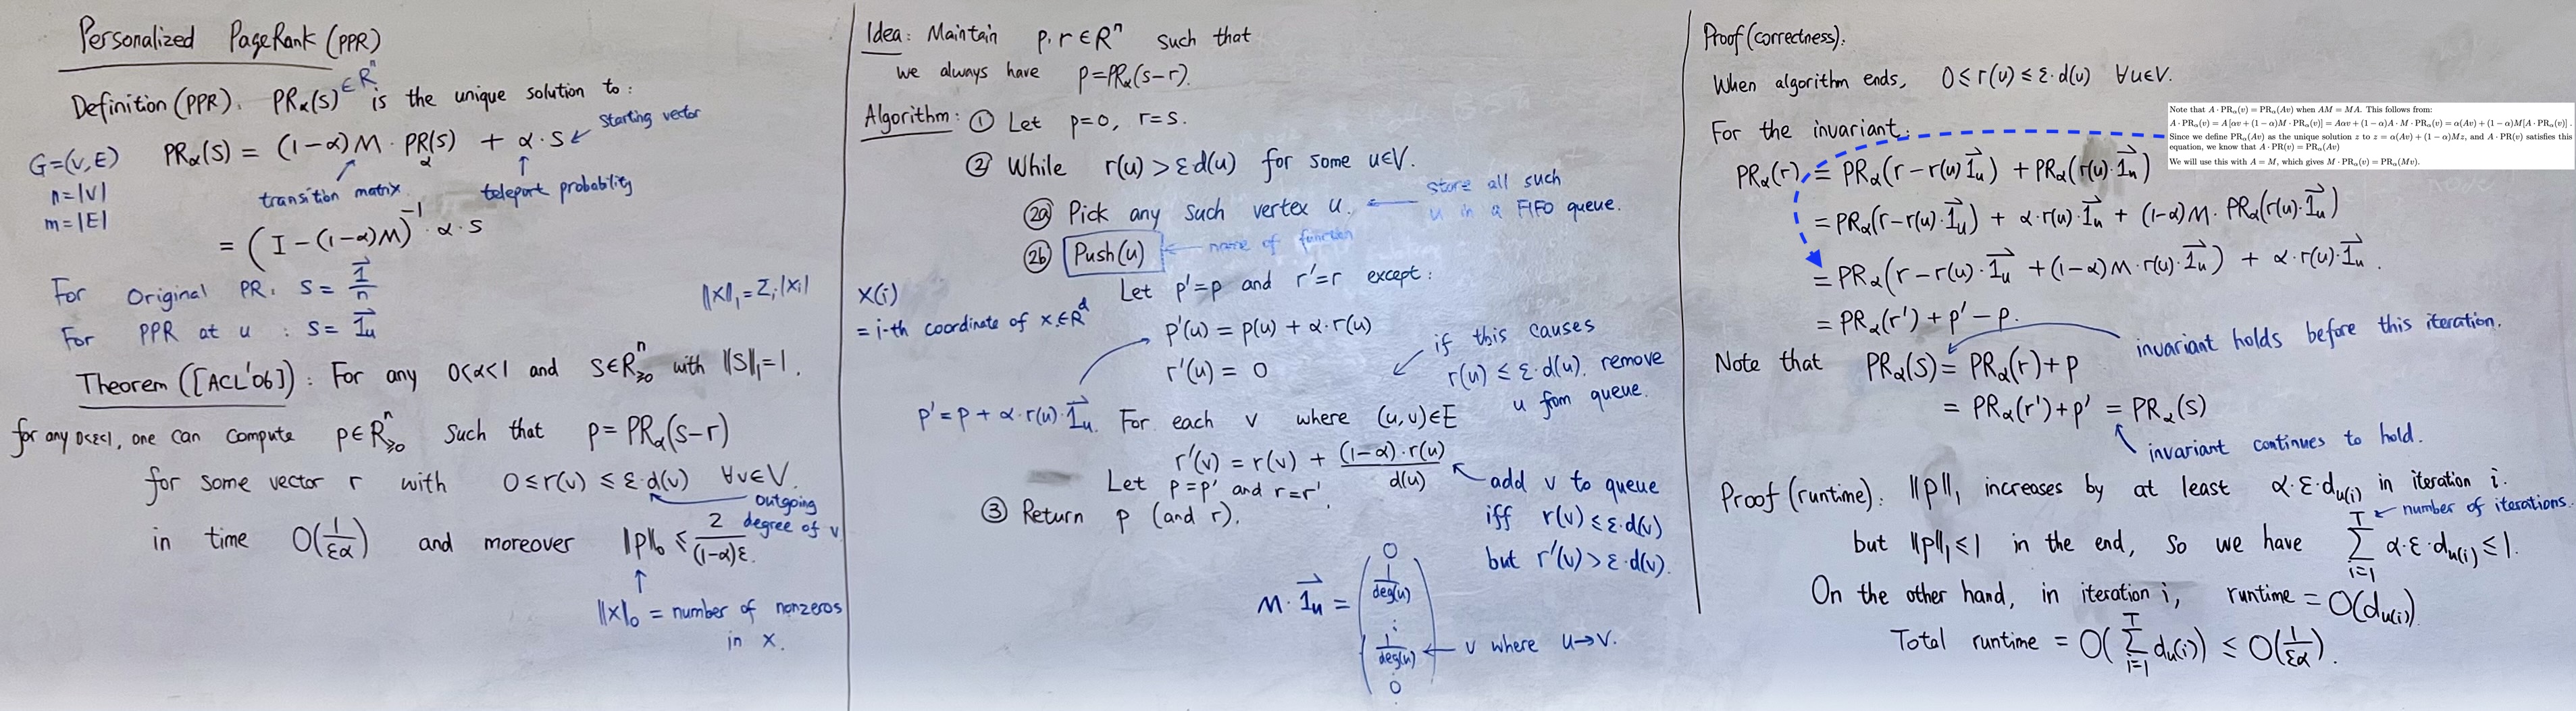 Personalized PageRank (PPR)
Definition (PPR). PRα(s) ∈ Rⁿ is the unique solution to:
PRα(s) = (1-α)M · PRα(s) + α · s ← starting vector
G=(V,E)
n=|V|
m=|E|
transition matrix
teleport probability
= (I-(1-α)M)⁻¹ · α · s
For Original PR: s = 1⃗/n
For PPR at u : s = 1⃗u
‖x‖₁ = Σᵢ|xᵢ|
Theorem ([ACL'06]): For any 0<α<1 and s∈Rⁿ≥0 with ‖s‖₁=1,
for any 0<ε<1, one can compute p∈Rⁿ≥0 such that p=PRα(s-r)
for some vector r with 0≤r(v)≤ε·d(v) ∀v∈V.
outgoing
degree of v
in time O(1/(εα)) and moreover ‖p‖₀ ≤ 2/((1-α)ε).
‖x‖₀ = number of nonzeros
in x.
Idea: Maintain p, r ∈ Rⁿ such that
we always have p=PRα(s-r).
Algorithm: ① Let p=0, r=s.
② While r(u)>εd(u) for some u∈V.
2a Pick any such vertex u. ← store all such
u in a FIFO queue.
2b Push(u) ← name of function
Let p'=p and r'=r except:
x(i)
= i-th coordinate of x∈Rᵈ
p'(u) = p(u) + α·r(u)
r'(u) = 0
if this causes
r(u) ≤ ε·d(u), remove
u from queue.
p' = p + α·r(u)·1⃗u.
For each v where (u,v)∈E
r'(v) = r(v) + (1-α)·r(u)/d(u)
Let p=p' and r=r'.
③ Return p (and r).
add v to queue
iff r(v) ≤ ε·d(v)
but r'(v) > ε·d(v).
M·1⃗u = (0 1/deg(u) ⋮ 1/deg(u) 0) ← v where u→v.
Proof (correctness):
When algorithm ends, 0≤r(u)≤ε·d(u) ∀u∈V.
For the invariant:
Note that A · PRα(v) = PRα(Av) when AM = MA. This follows from:
A · PRα(v) = A[αv + (1 − α)M · PRα(v)] = Aαv + (1 − α)A · M · PRα(v) = α(Av) + (1 − α)M[A · PRα(v)] .
Since we define PRα(Av) as the unique solution z to z = α(Av) + (1 − α)Mz, and A · PR(v) satisfies this
equation, we know that A · PR(v) = PRα(Av)
We will use this with A = M, which gives M · PRα(v) = PRα(Mv).
PRα(r) = PRα(r-r(u)1⃗u) + PRα(r(u)·1⃗u)
= PRα(r-r(u)·1⃗u) + α·r(u)·1⃗u + (1-α)M·PRα(r(u)·1⃗u)
= PRα(r-r(u)·1⃗u + (1-α)M·r(u)·1⃗u) + α·r(u)·1⃗u.
= PRα(r') + p' - p.
invariant holds before this iteration.
Note that PRα(s) = PRα(r)+p
= PRα(r')+p' = PRα(s)
invariant continues to hold.
Proof (runtime): ‖p‖₁ increases by at least α·ε·d_u(i) in iteration i.
T ← number of iterations.
but ‖p‖₁≤1 in the end, so we have Σᵢ₌₁ᵀ α·ε·d_u(i) ≤ 1.
On the other hand, in iteration i, runtime = O(d_u(i))
Total runtime = O(Σᵢ₌₁ᵀ d_u(i)) ≤ O(1/(εα)).